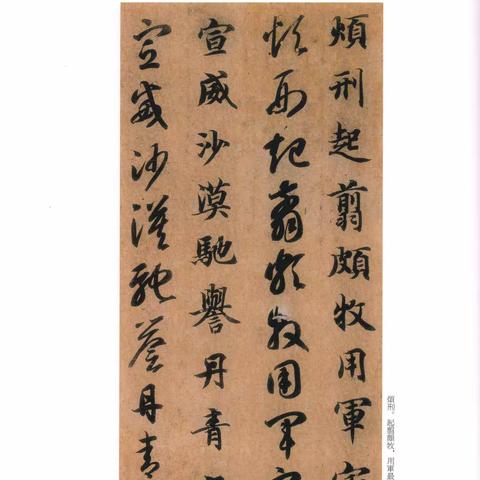 煩刑。起翦頗牧，用軍最
煩刑起翦頗牧用軍
煩刑起翦頗牧用軍
宣威沙漠馳譽丹青
宣威沙漠馳譽丹青